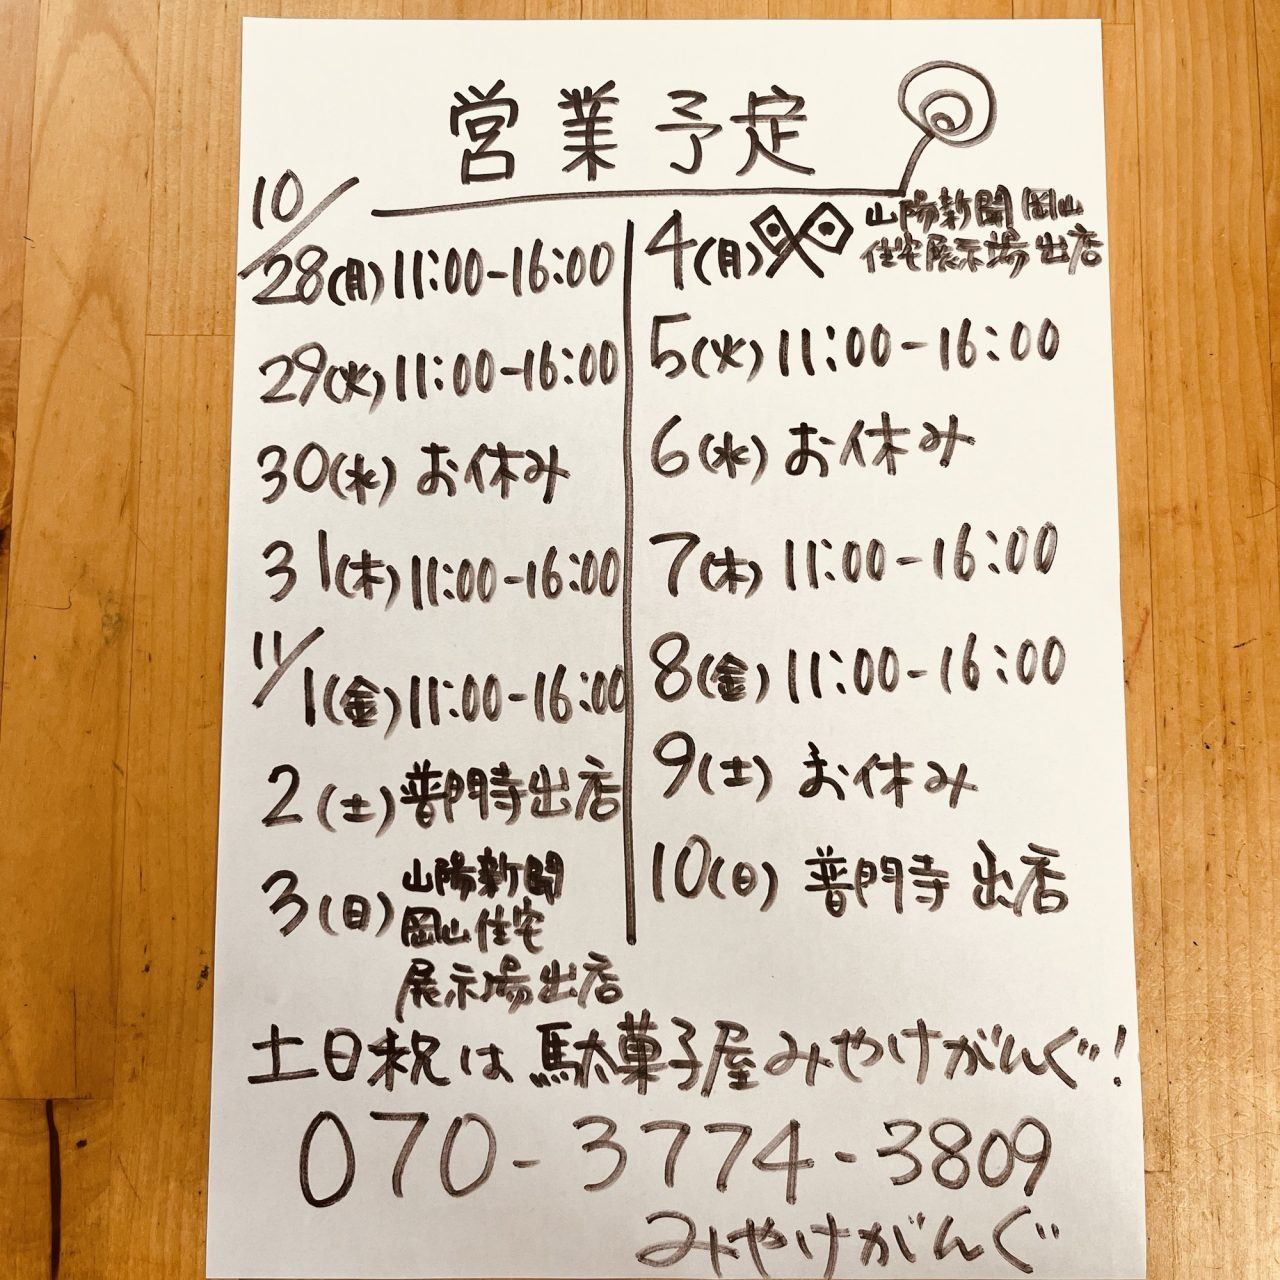 営業予定
10/28(月)11:00-16:00
29(火)11:00-16:00
30(水)お休み
31(木)11:00-16:00
11/1(金)11:00-16:00
2(土)普門寺出店
3(日)山陽新聞
岡山住宅
展示場出店
4(月)山陽新聞岡山
住宅展示場出店
5(火)11:00-16:00
6(水)お休み
7(木)11:00-16:00
8(金)11:00-16:00
9(土)お休み
10(日)普門寺出店
土日祝は駄菓子屋みやけがんぐ!
070-3774-3809
みやけがんぐ